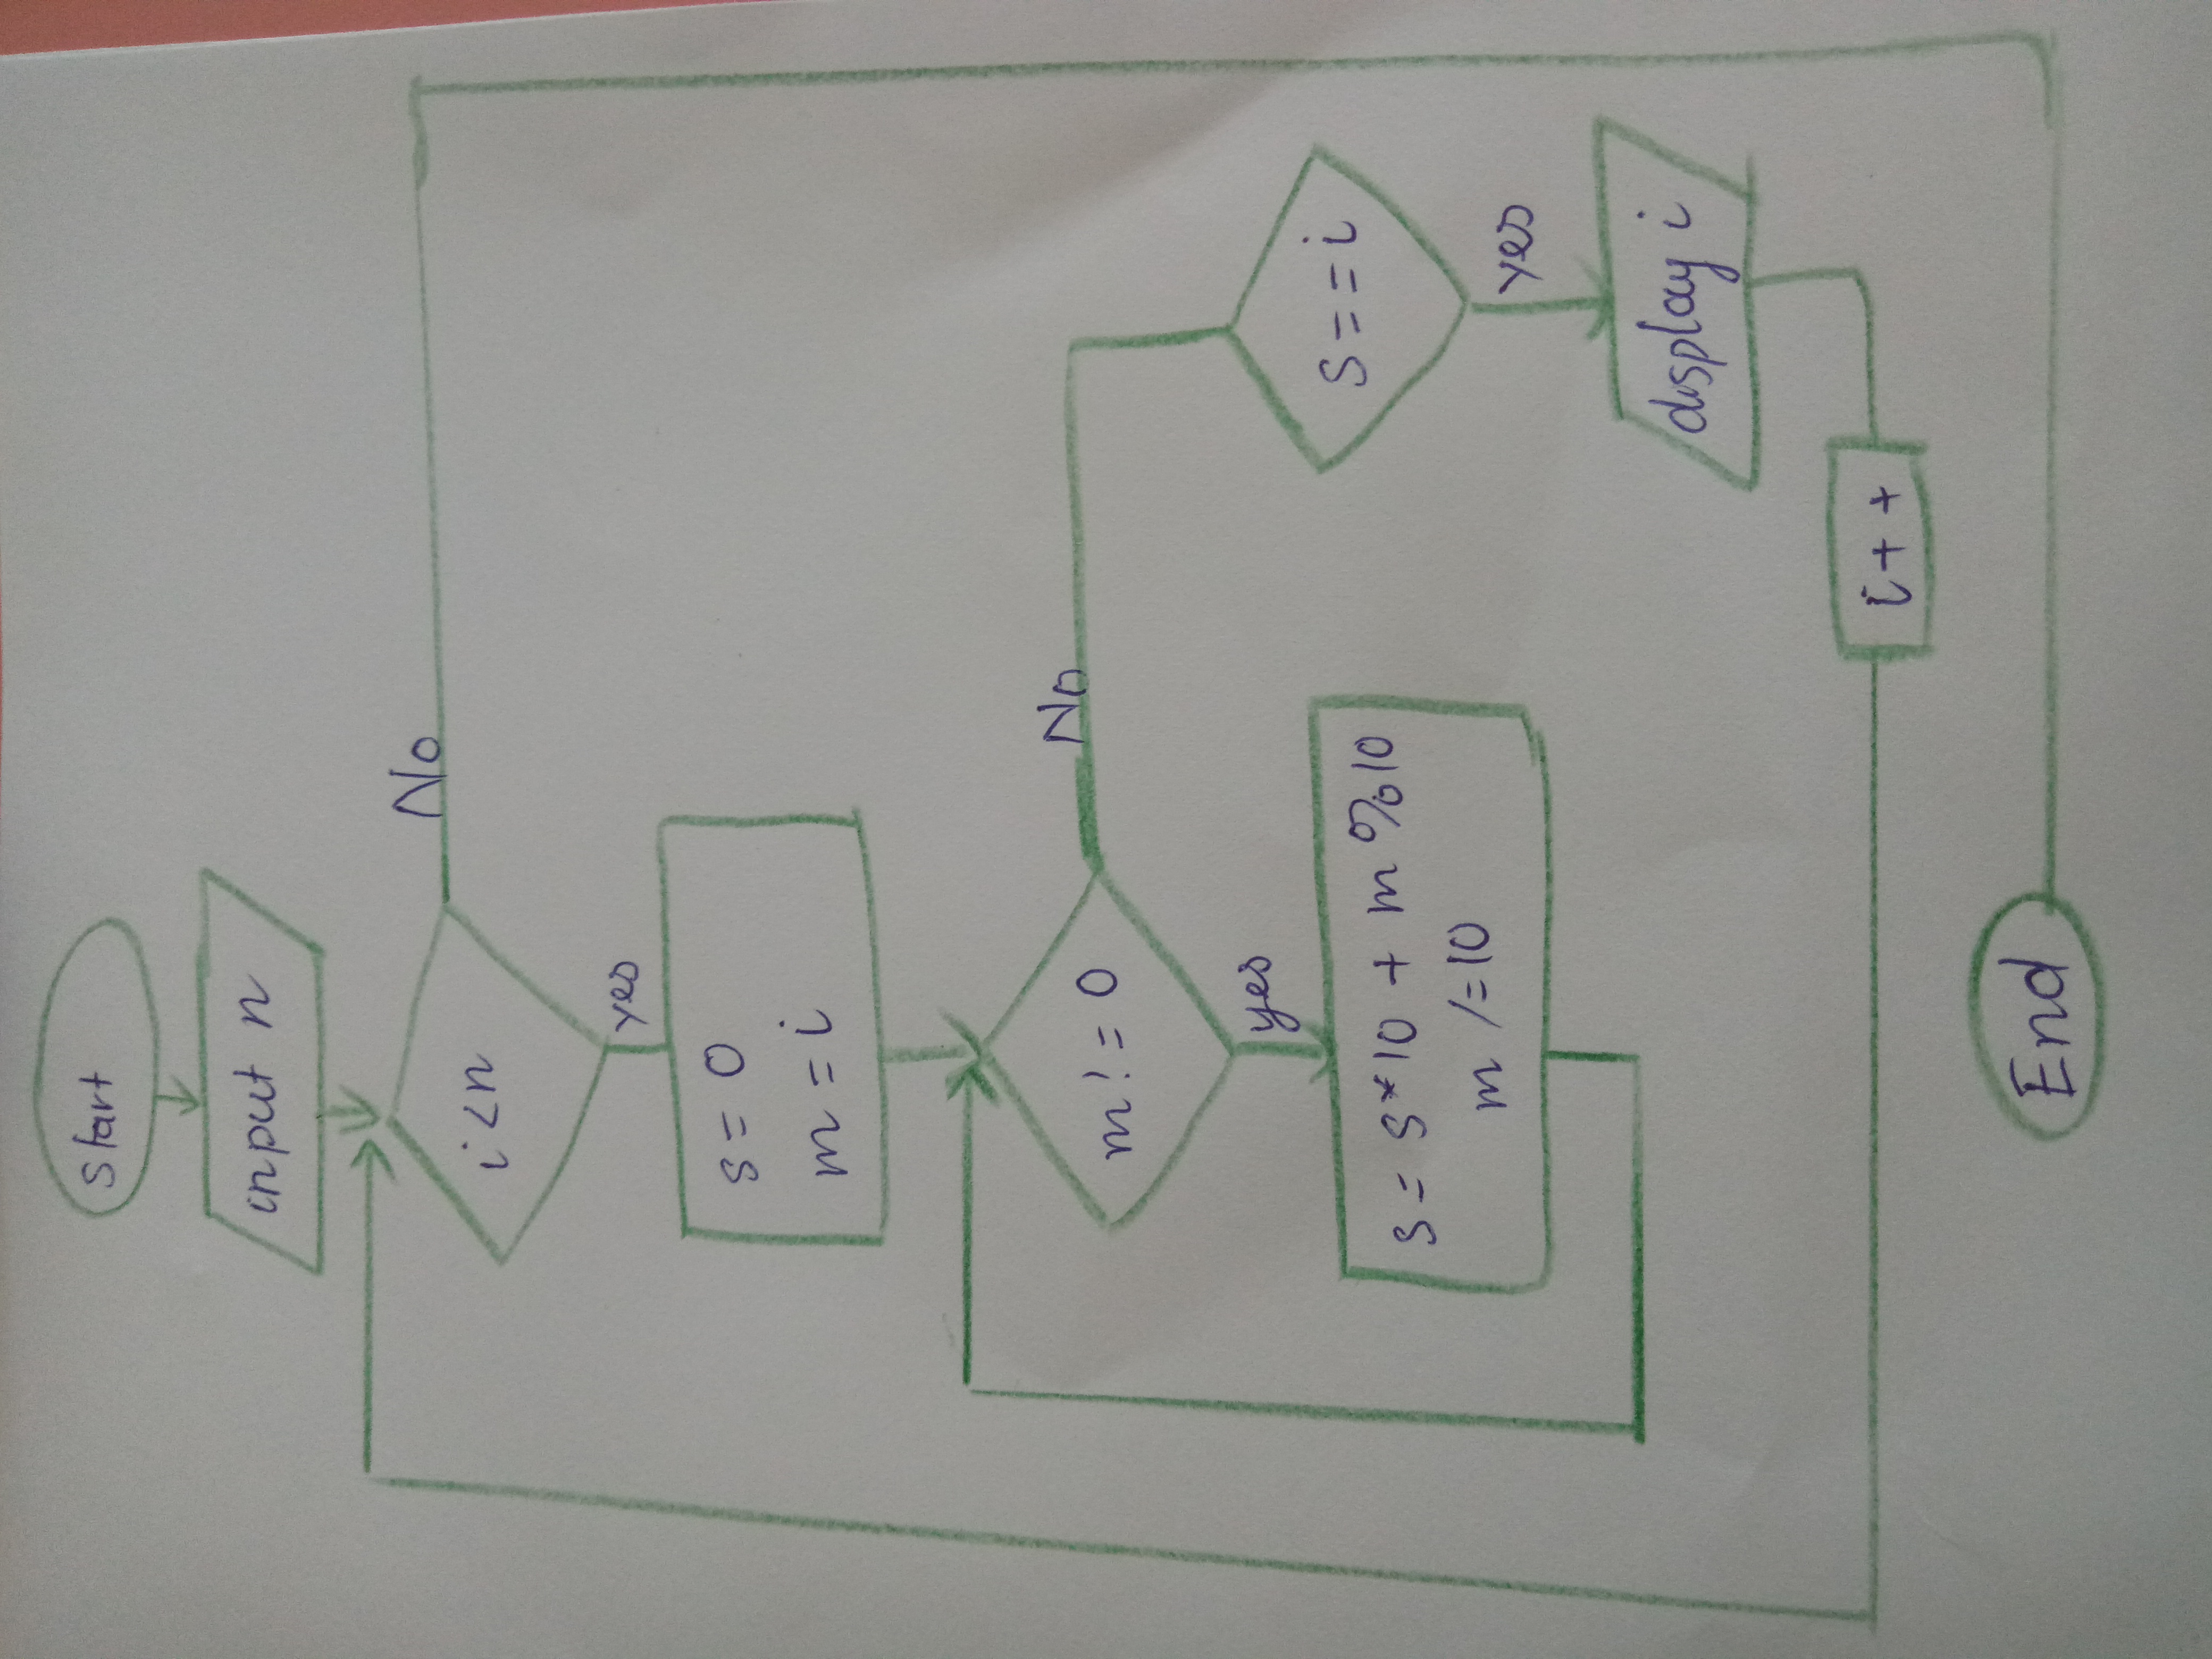 start
input n
i <n
No
yes
s = 0
m = i
m! = 0
No
yes
s = s*10 + m %10
m /=10
s = = i
yes
display i
i + +
End